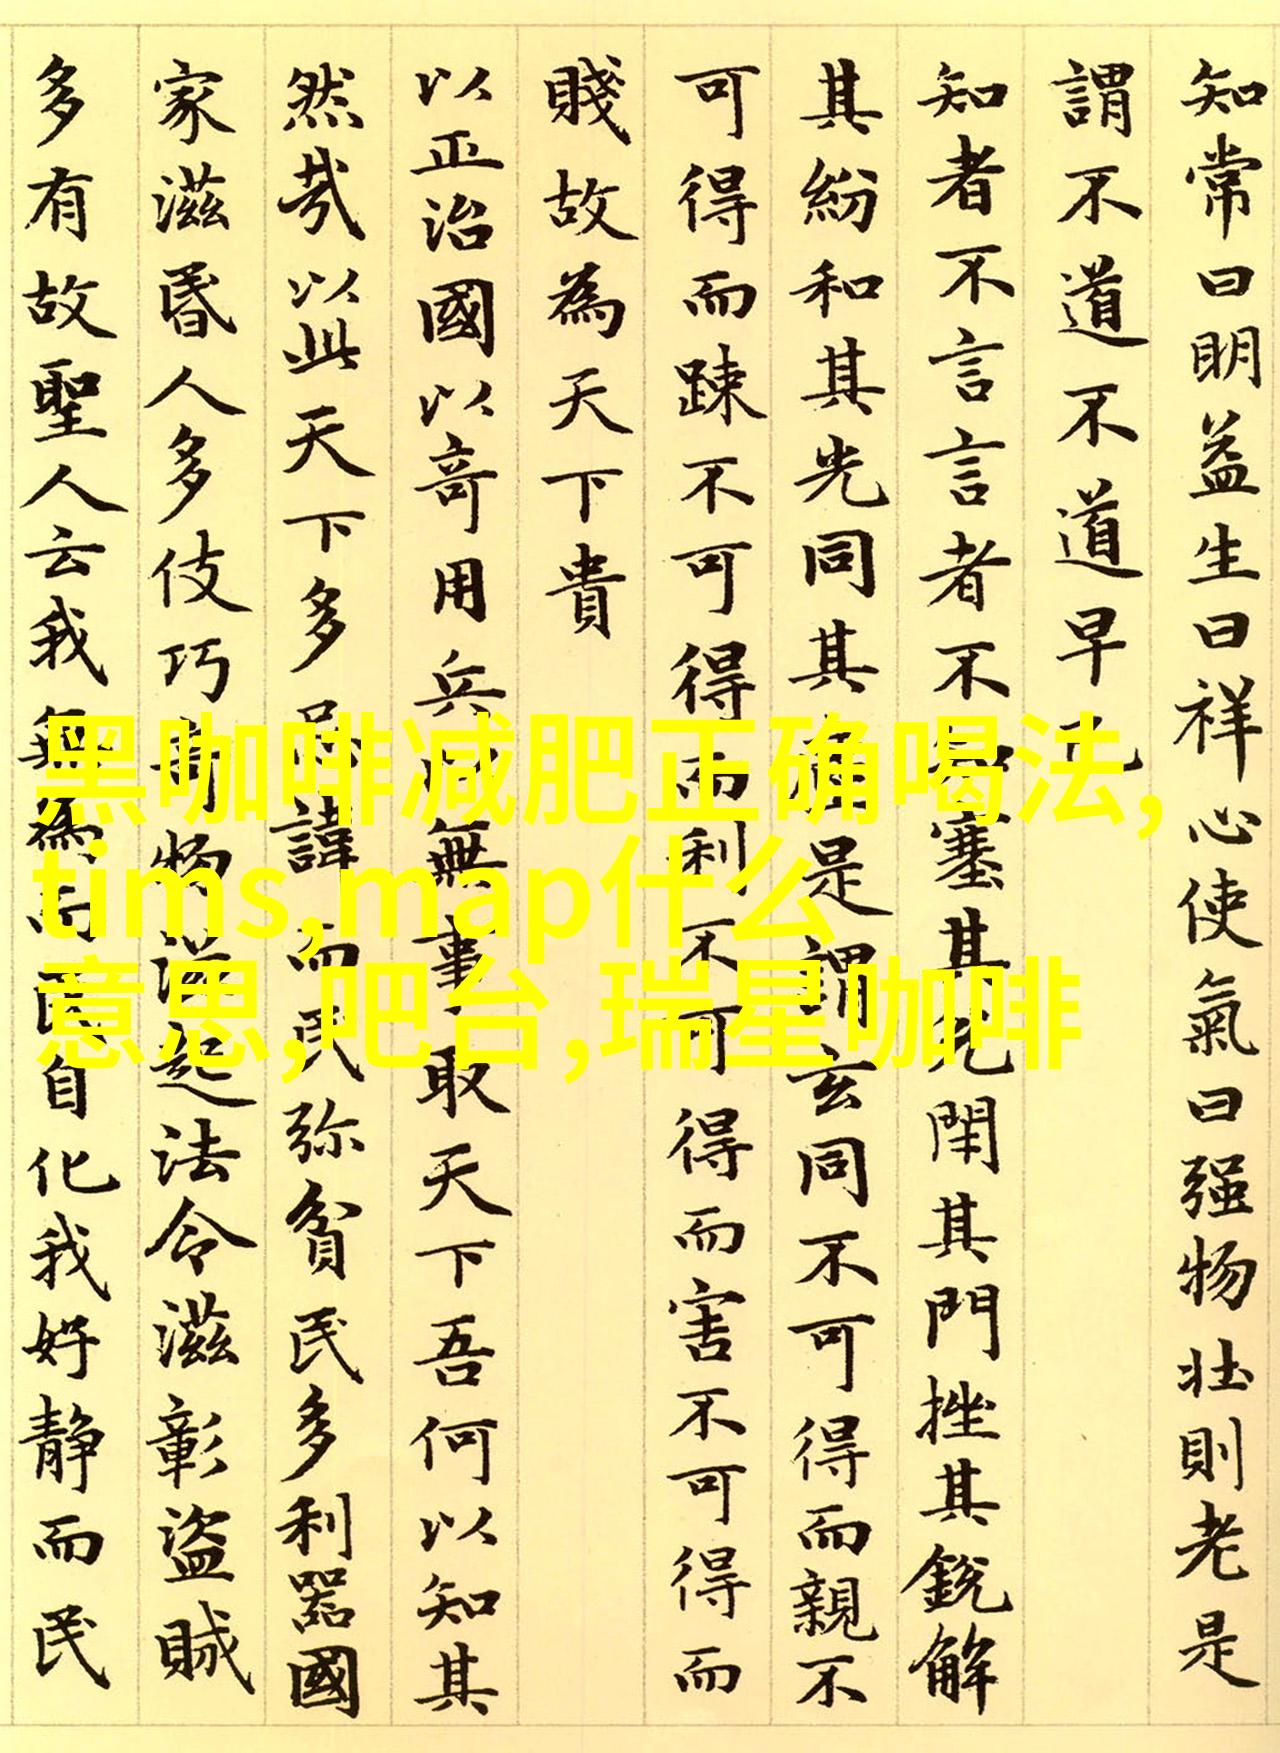 知常曰明益生曰祥心使氣曰强物壮則老是
謂不道不道早已
知者不言言者不知塞其兑閉其門挫其銳解
其紛和其光同其塵是謂玄同不可得而親不
可得而踈不可得而利不可得而害不可得而
賤故為天下貴
以正治國以竒用兵以無事取天下吾何以知其
然㢤以此天下多忌諱而民弥貧民多利器國
家滋昏人多伎巧竒物滋起法令滋彰盗賊
多有故聖人云我無為而民自化我好静而民
黑咖啡减肥正确喝法,
tims,map什么
意思,吧台,瑞星咖啡